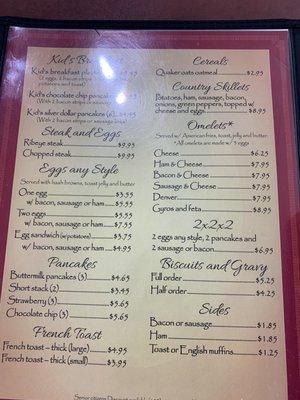 Kid's
Kid's breakfast
(2 eggs, 2 bacon strips
potatoes and toast)
Kid's chocolate chip pancake
(With 2 bacon strips or sausage
Kid's silver dollar pancakes (6)
(With 2 bacon strips or sausage links)
Steak and Eggs
Ribeye steak $9.95
Chopped steak $9.95
Eggs any Style
Served with hash browns, toast jelly and butter
One egg $3.55
w/ bacon, sausage or ham $5.55
Two eggs $5.55
w/ bacon, sausage or ham $7.55
Egg sandwich (w/potatoes) $3.75
w/ bacon, sausage or ham $4.95
Pancakes
Buttermilk pancakes (3) $4.65
Short stack (2) $3.45
Strawberry (3) $5.65
Chocolate chip (3) $5.65
French Toast
French toast – thick (large) $4.95
French toast – thick (small) $3.95
Cereals
Quaker oats oatmeal $2.95
Country Skillets
Potatoes, ham, sausage, bacon,
onions, green peppers, topped w/
cheese and eggs $8.95
Omelets*
Served w/ American fries, toast, jelly and butter
*All omelets are made w/ 3 eggs
Cheese $6.25
Ham & Cheese $7.95
Bacon & Cheese $7.95
Sausage & Cheese $7.95
Denver $7.95
Gyros and feta $8.95
2x2x2
2 eggs any style, 2 pancakes and
2 sausage or bacon $6.95
Biscuits and Gravy
Full order $5.25
Half order $4.25
Sides
Bacon or sausage $1.85
Ham $1.85
Toast or English muffins $1.25
Senior citizens Discount